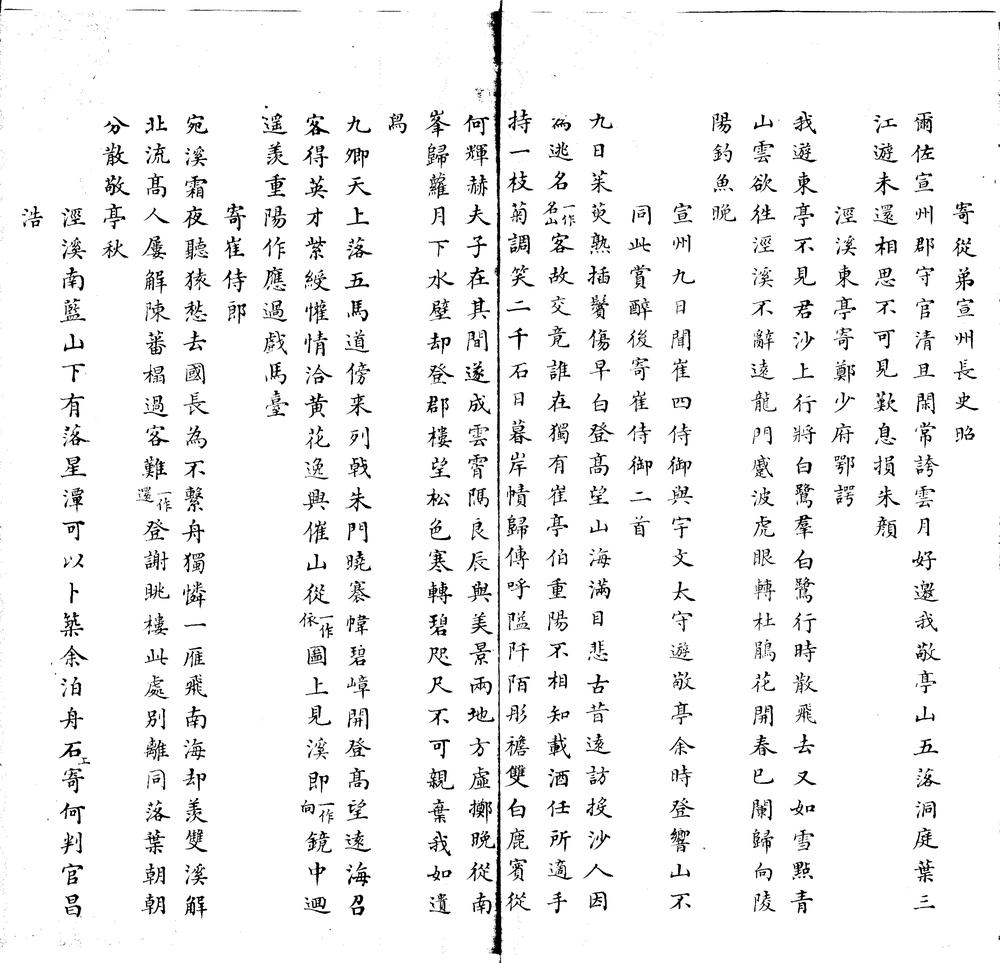 寄從弟宣州長史昭
爾佐宣州郡守官清且閑常誇雲月好邀我敬亭山五落洞庭葉三
江遊未還相思不可見歎息損朱顏
涇溪東亭寄鄭少府鄂諤
我遊東亭不見君沙上行將白鷺羣白鷺行時散飛去又如雪點青
山雲欲徃涇溪不辭遠龍門蹙波虎眼轉杜鵑花開春已闌歸向陵
陽釣魚晚
宣州九日聞崔四侍御與宇文太守遊敬亭余時登響山不
同此賞醉後寄崔侍御二首
九日茱萸熟插鬢傷早白登髙望山海滿目悲古昔遠訪投沙人因
為逃名一作名山客故交竟誰在獨有崔亭伯重陽不相知載酒任所適手
持一枝菊調笑二千石日暮岸幘歸傳呼隘阡陌彤襜雙白鹿賓從
何輝赫夫子在其間遂成雲霄隔良辰與美景兩地方虛擲晚從南
峯歸蘿月下水壁却登郡樓望松色寒轉碧咫尺不可親棄我如遺
舄
九卿天上落五馬道傍来列戟朱門曉褰幃碧嶂開登髙望遠海召
客得英才紫綬懽情洽黄花逸興催山從一作依圖上見溪即一作向鏡中迴
遥羨重陽作應過戲馬臺
寄崔侍郎
宛溪霜夜聽猿愁去國長為不繫舟獨憐一雁飛南海却羨雙溪解
北流髙人屢解陳蕃榻過客難一作還登謝眺樓此處别離同落葉朝朝
分散敬亭秋
涇溪南藍山下有落星潭可以卜築余泊舟石上寄何判官昌
浩